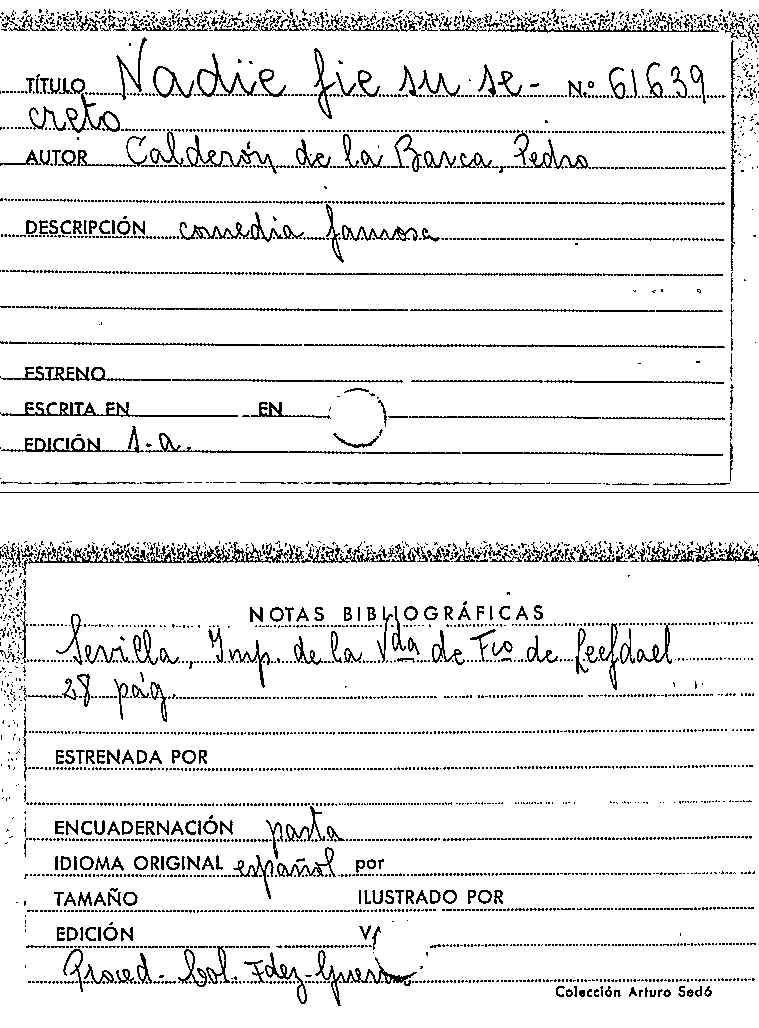 TÍTULO Nadie fie su se- N.º 61639
creto
AUTOR Calderón de la Barca, Pedro
DESCRIPCIÓN comedia famosa
ESTRENO
ESCRITA EN EN
EDICIÓN s.a.
NOTAS BIBLIOGRÁFICAS
Sevilla, Imp. de la Vda de Fco de Leefdael
28 pág.
ESTRENADA POR
ENCUADERNACIÓN pasta
IDIOMA ORIGINAL español por
TAMAÑO ILUSTRADO POR
EDICIÓN
Proced. Col. Fdez-Guerra
Colección Arturo Sedó